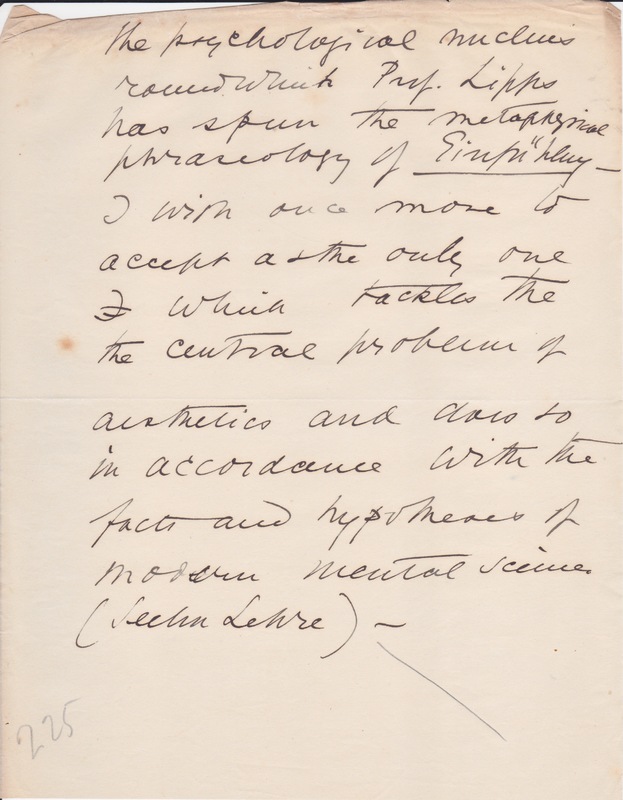 the psychological nucleus
round which Prof. Lipps
has spun the metaphysical
phraseology of Einfühlung —
I wish once more to
accept as the only one
which tackles the
the central problem of
aesthetics and does so
in accordance with the
facts and hypotheses of
modern mental science.
(Seelen Lehre) —
225